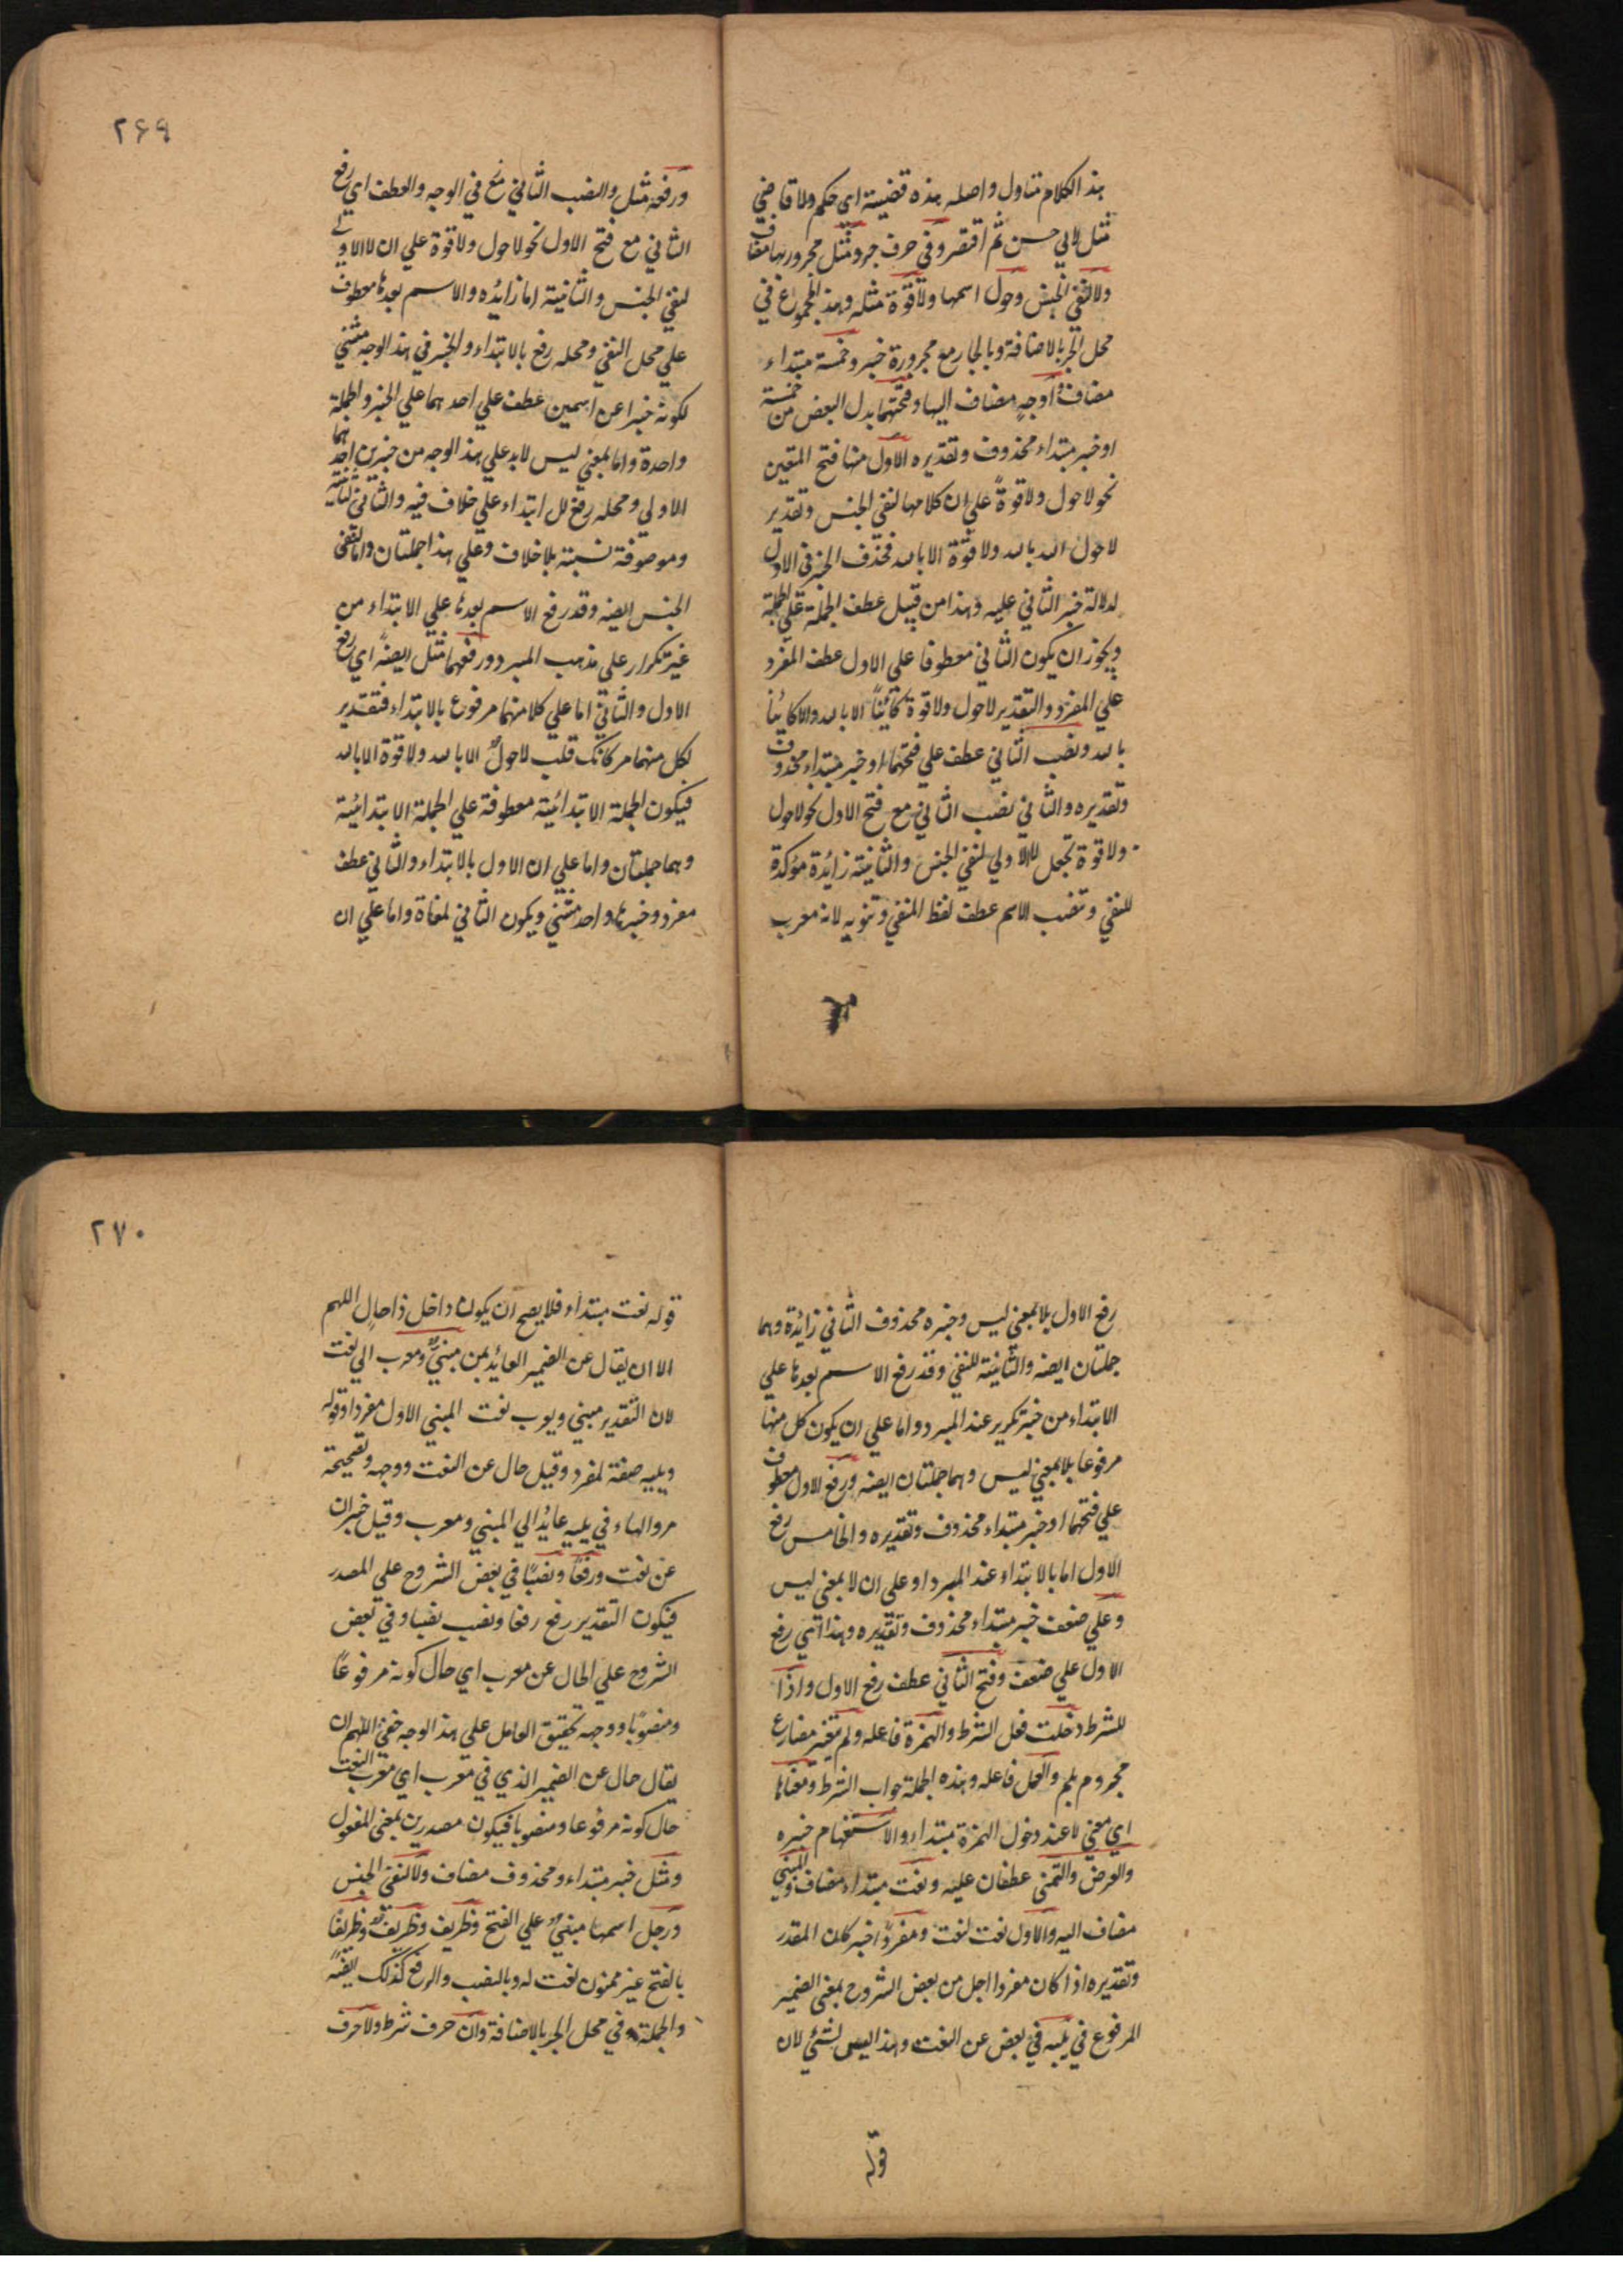 هذا الكلام متاول واصله هذه قضية اى حكم ولا قاضي
مثل لابي حسن ثم اقتصر وفي حرف جر ومثل مجرور بها مضاف
ولا لنفي الجنس وحول اسمها ولا قوة مثله وهذا المجموع في
محل الجر بالاضافة وبالجار مع مجروره خبر وخمسة مبتداء
مضاف واوجه مضاف اليها وفتحهما بدل البعض من خمسة
او خبر مبتداء محذوف وتقديره الاول منها فتح
نحو لا حول ولا قوة على ان كلامها لنفي الجنس وتقدير
لا حول الا بالله ولا قوة الا بالله فحذف الخبر في الاول
لدلالة خبر الثاني عليه وهذا من قبيل عطف الجملة على الجملة
ويجوز ان يكون الثاني معطوفا على الاول عطف المفرد
علي المفرد والتقدير لا حول ولا قوة كائنا الا بالله والا كائنا
بالله ونصب الثاني عطف علي فتحهما او خبر مبتداء محذوف
وتقديره والثاني نصب الثاني مع فتح الاول نحو لا حول
ولا قوة تجعل للاولي لنفي الجنس والثانية زائدة مؤكدة
للنفي وتنصب الاسم عطف لفظ المنفي وتنويه لانه معرب
٢٦٩
ورفعه مثل والنصب الثاني رفع في الوجه والعطف اي رفع
الثاني مع فتح الاول نحو لا حول ولا قوة علي ان لا الاولي
لنفي الجنس والثانية اما زائده والاسم بعدها معطوف
علي محل النفي ومحله رفع بالابتداء والخبر في هذا الوجه مثني
لكونه خبرا عن اسمين عطف علي احدهما علي الخبر والجملة
واحدة واما بمعني ليس لابد علي هذا الوجه من خبرين احدهما
الاولي ومحله رفع لل ابتداء علي خلاف فيه والثاني لثانية
وموصوفة نسبتة بلا خلاف وعلي هذا جملتان واما لنفي
الجنس ايضه وقد رفع الاسم بعدها علي الابتداء من
غير تكرار علي مذهب المبرد ورفعهما مثل ايضه اي رفع
الاول والثاني اما علي كلا منهما مرفوع بالابتداء فتقدير
لكل منهما مر كانك قلب لا حول الا بالله ولا قوة الا بالله
فيكون الجملة الابتدائية معطوفة علي الجملة الابتدائية
وهما جملتان واما علي ان الاول بالابتداء والثاني عطف
مفرد وخبرها واحد مثني ويكون الثاني لمغاة واما علي ان
رفع الاول بلا بمعني ليس وخبره محذوف الثاني زائدة وهما
جملتان ايضه والثانية للنفي وقد رفع الاسم بعدها علي
الابتداء من غير تكرير عند المبرد واما علي ان يكون كل منها
مرفوعا بلا بمعني ليس وهما جملتان ايضه ورفع الاول معطوف
علي فتحهما او خبر مبتداء محذوف وتقديره والخامس رفع
الاول اما بالابتداء عند المبرد او علي ان لا بمعني ليس
وعلي ضعف خبر مبتداء محذوف وتقديره وهذا رفع
الاول علي ضعف وفتح الثاني عطف رفع الاول واذا
للشرط دخلت فعل الشرط والهمزة فاعله ولم تغير مضارع
مجروم بلم والعمل فاعله وهذه الجملة جواب الشرط ومعناها
اي معني لا عند دخول الهمزة مبتداء والاستفهام خبره
والعرض والتمني عطفان عليه ونعت مبتداء مضاف والمبني
مضاف اليه والاول نعت لنعت ومفردا خبر كان المقدر
وتقديره اذا كان مفردا اجل من بعض الشروح بمعني الضمير
المرفوع في يليه في بعض عن النعت وهذا ليس لشئ لان
قوله
٢٧٠
قوله نعت مبتداء فلا يصح ان يكون داخل ذا حال اللهم
الا ان يقال عن الضمير العائد من مبني ومعرب الي نعت
لان التقدير مبني ويعرب نعت المبني الاول مفردا وقوله
ويليه صفة لمفرد وقيل حال عن النعت ووجهه وتصحيحه
مر والهاء في يليه عائد الي المبني ومعرب وقيل خبران
عن نعت ورفعا ونصبا في بعض الشروح علي المصدر
فيكون التقدير رفع رفعا ونصب نصبا وفي بعض
الشروح علي الحال عن معرب اي حال كونه مرفوعا
ومنصوبا ووجهه تحقيق العامل علي هذا الوجه خفي اللهم ان
يقال حال عن الضمير الذي في معرب اي معرب النعت
حال كونه مرفوعا ومنصوبا فيكون مصدرين بمعني المفعول
ومثل خبر مبتداء ومحذوف مضاف ولا لنفي الجنس
ورجل اسمها مبني علي الفتح وظريف وظريف وظريفا
بالفتح غير ممنون نعت له وبالنصب والرفع كذلك ايضه
والجملة في محل الجر بالاضافة وان حرف شرط ولا حرف